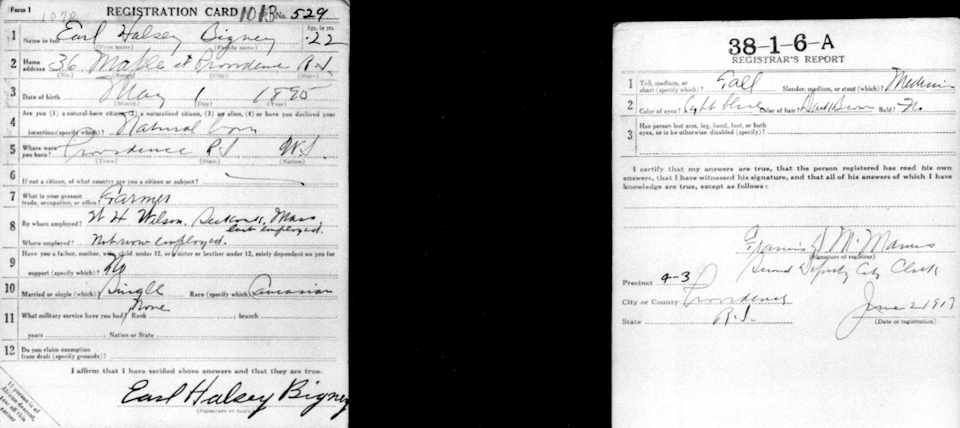 Form 1
1078
REGISTRATION CARD 1013 No. 529
1 Name in full Earl Halsey Bigney Age, in yrs. 22
(Given name) (Family name)
2 Home address 36 Maple st Providence R.I.
(No.) (Street) (City) (State)
3 Date of birth May 1 1895
(Month) (Day) (Year)
4 Are you (1) a natural-born citizen, (2) a naturalized citizen, (3) an alien, (4) or have you declared your
intention (specify which)? Natural born
5 Where were you born? Providence R.I. U.S.
(Town) (State) (Nation)
6 If not a citizen, of what country are you a citizen or subject?
7 What is your present trade, occupation, or office? Farmer
8 By whom employed? W H Wilson, Mass last employed.
Where employed? Not now employed.
9 Have you a father, mother, wife, child under 12, or a sister or brother under 12, solely dependent on you for
support (specify which)? No
10 Married or single (which)? Single Race (specify which)? Caucasian
11 What military service have you had? Rank None ; branch
years Nation or State
12 Do you claim exemption from draft (specify grounds)?
I affirm that I have verified above answers and that they are true.
Earl Halsey Bigney
(Signature or mark)
If person is of
African descent,
tear off this
corner
38-1-6-A
REGISTRAR'S REPORT
1 Tall, medium, or short (specify which)? Tall Slender, medium, or stout (which)? Medium
2 Color of eyes? Light blue Color of hair? Dark Brown Bald? No
3 Has person lost arm, leg, hand, foot, or both
eyes, or is he otherwise disabled (specify)?
I certify that my answers are true, that the person registered has read his own
answers, that I have witnessed his signature, and that all of his answers of which I have
knowledge are true, except as follows:
Francis D. McManus
(Signature of registrar)
Second Deputy City Clerk
Precinct 4-3
City or County Providence
State R.I.
June 2 1917
(Date of registration)